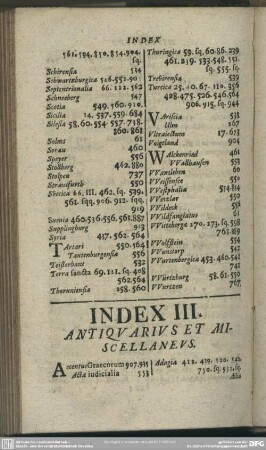 INDEX
561. 594. 850. 854. 904.
sq.
Schirensia 534
Schwartzburgica 518. 551. 90
Septentrionalia 66. 122. 562
Schneeberg 547
Scotia 549. 760. 910.
Sicilia 14. 537. 559. 684
Silesia 58. 60. 554. 557. 718.
860. 861
Solms 61
Sorau 460
Speyer 556
Stollberg 462. 880
Stolpen 737
Strausfurth 550
Suecica 46. 111. 462. sq. 539.
561. sqq. 906. 912. sqq.
919
Suevia 460. 536. 556. 561. 887
Supplingburg 913
Syria 417. 562. 564
Tartari 550. 564
Tautenburgensia 556
Teisterbant 532
Terra sancta 69. 112. sq. 408
562. 564
Thoruniensia 258. 560
Thuringica 59. sq. 60. 86. 239
461. 239. 533. 548. 551.
sq. 555. sq.
Trebirensia 539
Turcica 25. 40. 67. 110. 356
428. 475. 526. 546. 564
906. 915. sq. 944
VAriscia 538
Ulm 267
Ultraiectum 17. 673
Voigtland 904
WAlckenried 461
VVallhausen 553
VVansleben 66
VVeissensee 550
VVestphalia 514. 814
VVetzlar 550
VVildeck 558
VVildfangiatus
VVittebergæ 170. 173. sq. 558
763. 789
VVolffstein 554
VVunstorp 542
VVurtenbergica 453. 460. 541
742
VVürtzburg 58. 61. 559
VVurtzen 767
INDEX III.
ANTIQVARIVS ET MI-
SCELLANEVS.
AccentusGraecorum 907. 915
Acta iudicialia 553
Adagia 412. 419.
750. sq. 931. sq.